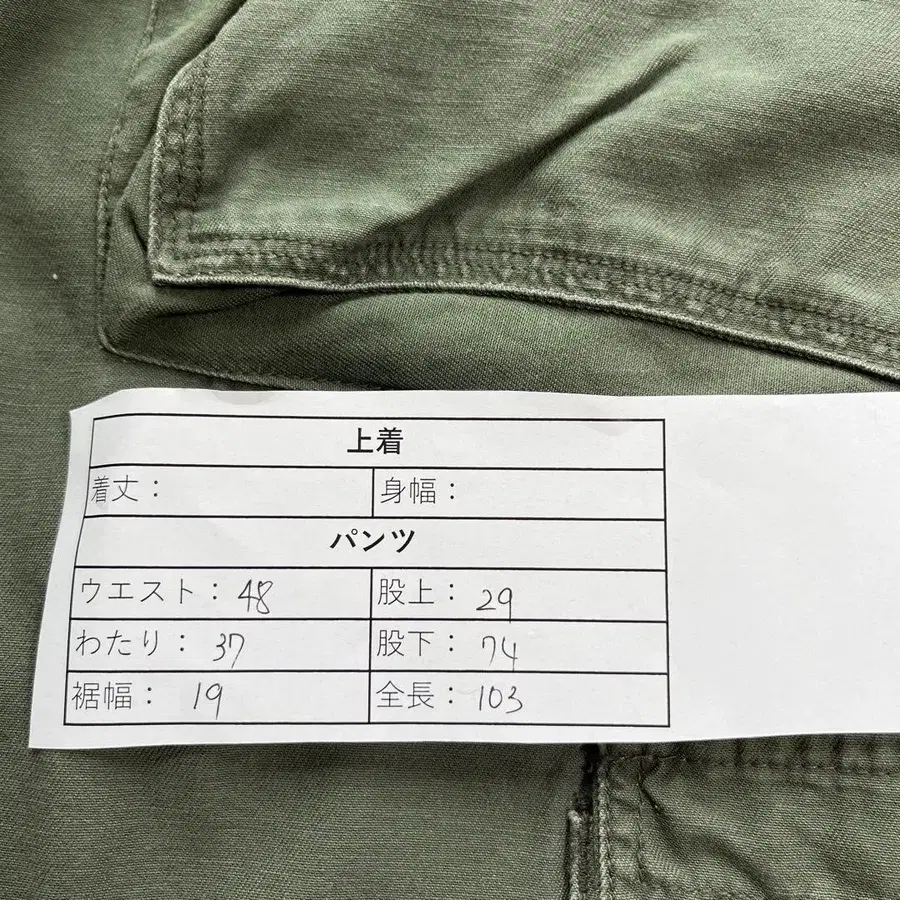 上着
着丈： 身幅：
パンツ
ウエスト：48 股上：29
わたり：37 股下：74
裾幅：19 全長：103